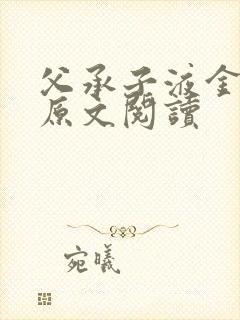 父承子液金
原文閱讀
宛曦